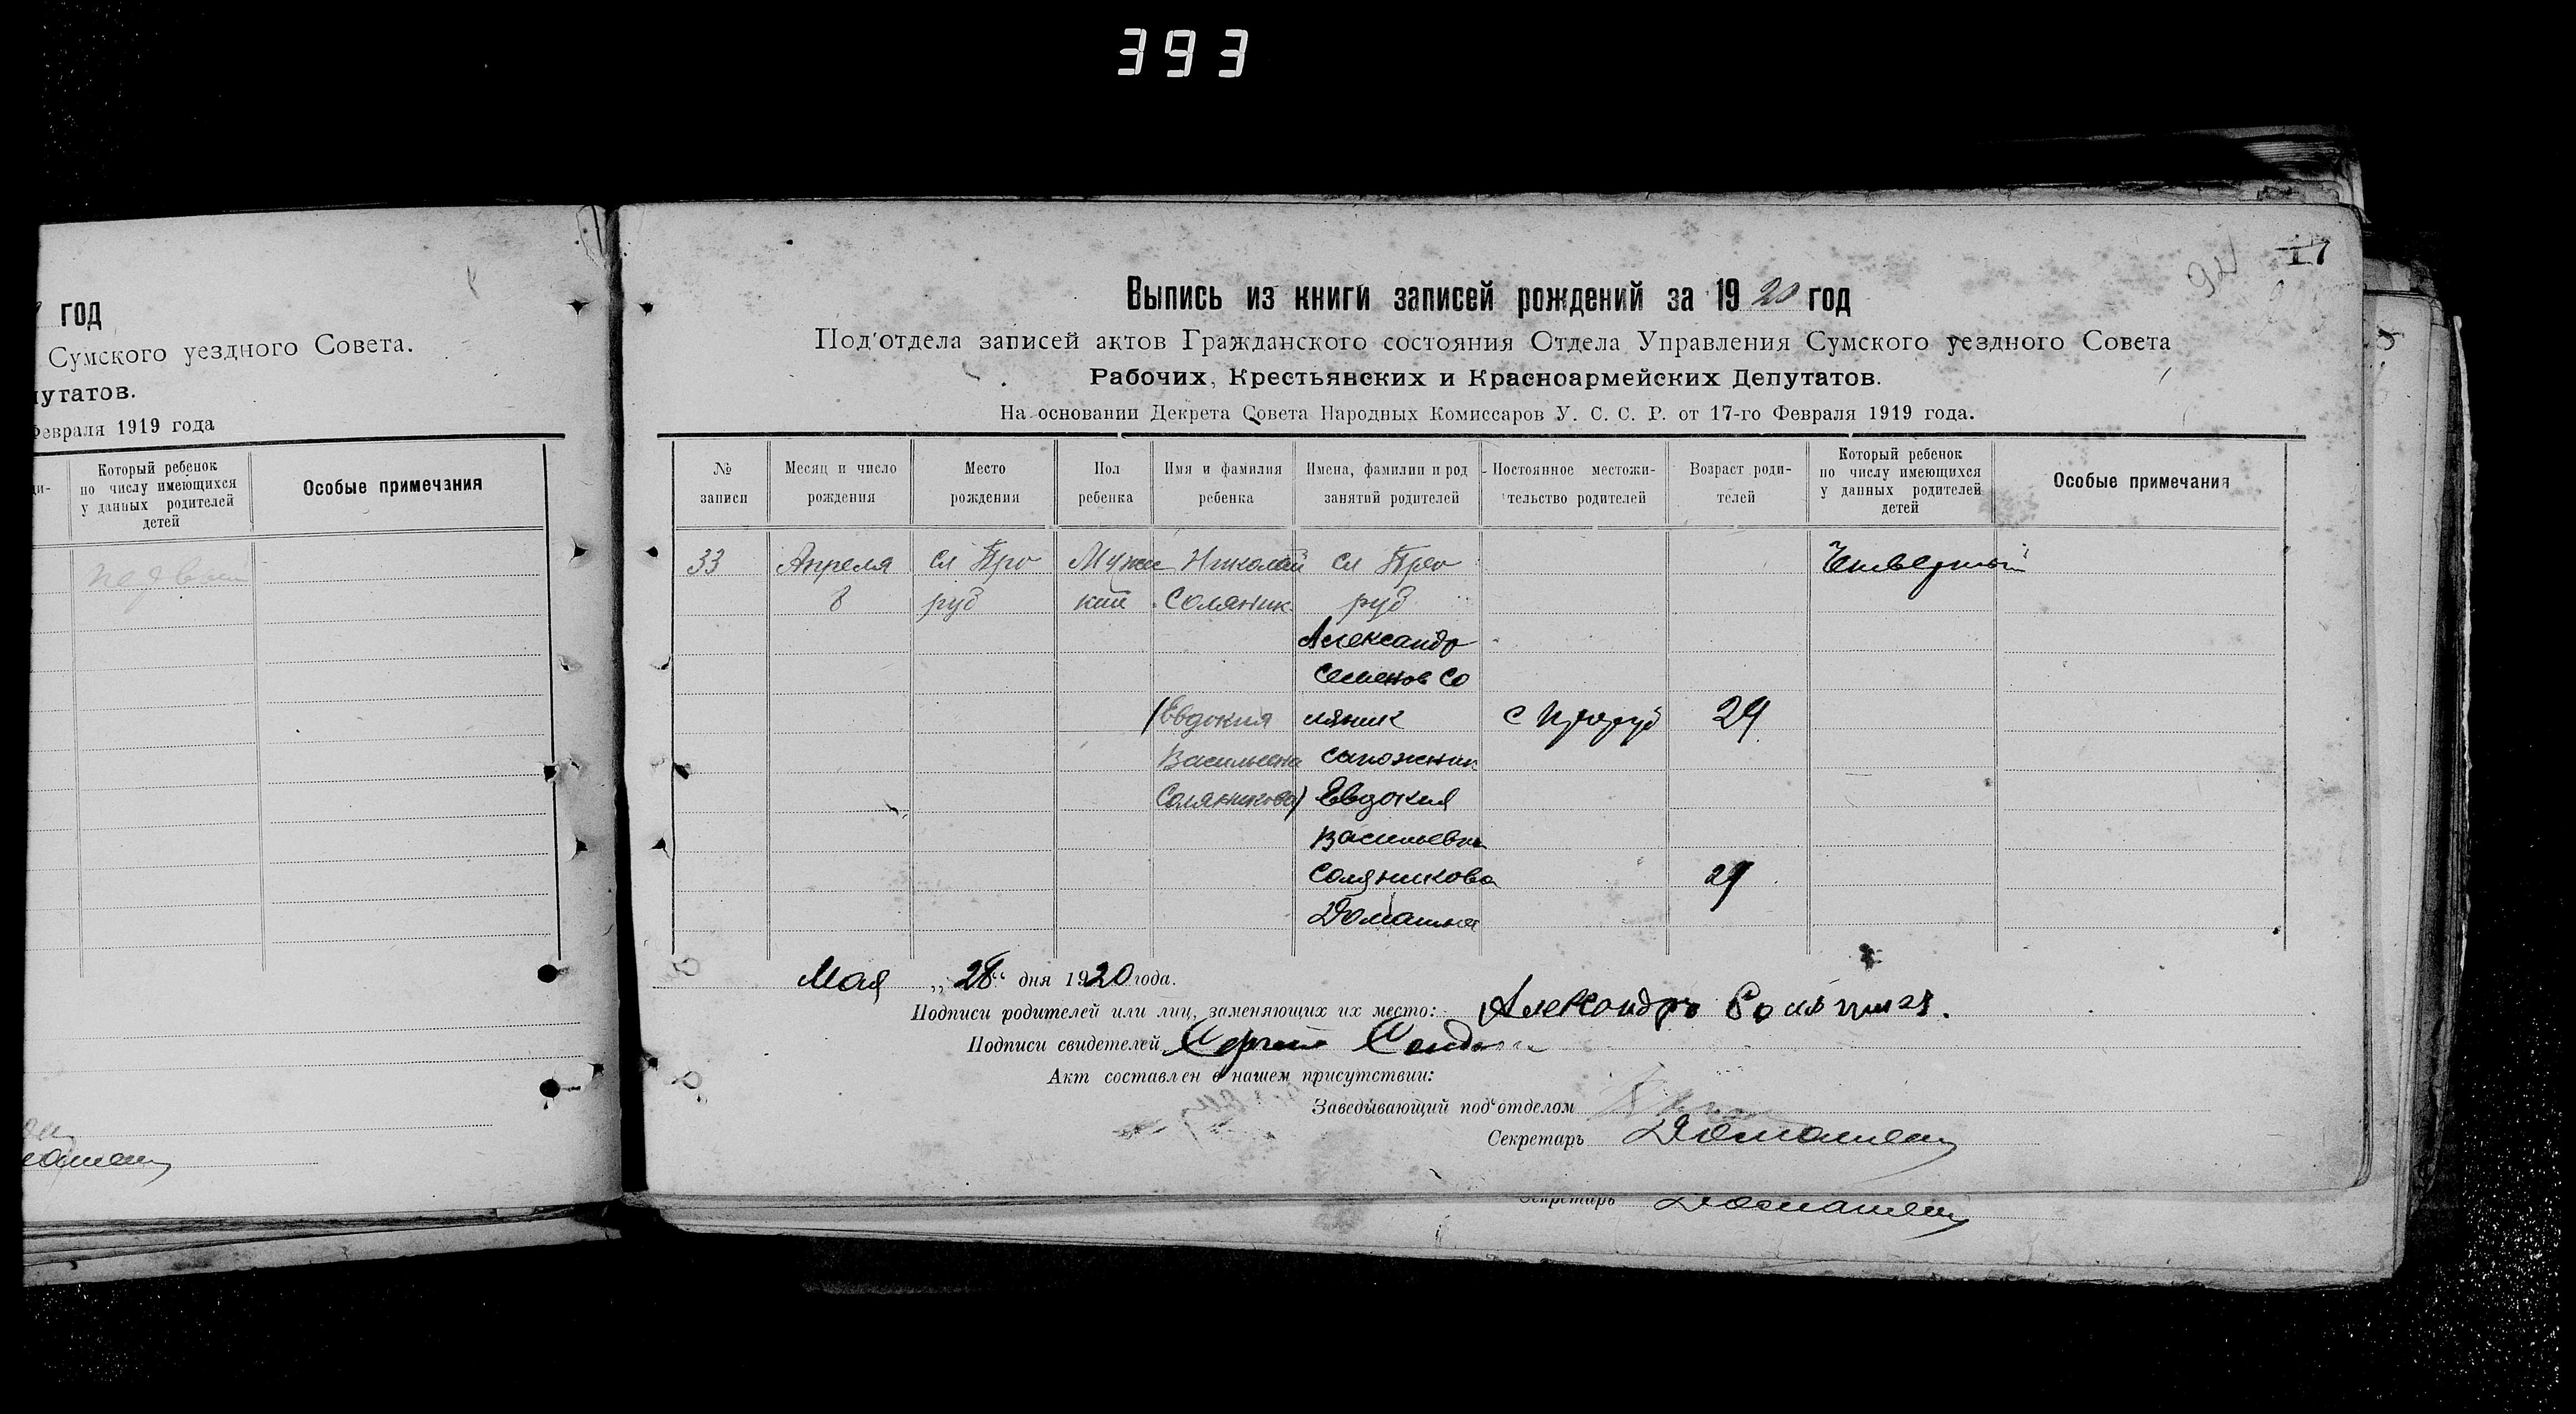 393
17
год
Сумского уездного Совета.
путатов.
Февраля 1919 года
Который ребенок
по числу имеющихся
у данных родителей
детей
Особые примечания
первый
Выпись из книги записей рождений за 1920 год
Под'отдела записей актов Гражданского состояния Отдела Управления Сумского уездного Совета
Рабочих, Крестьянских и Красноармейских Депутатов.
На основании Декрета Совета Народных Комиссаров У. С. С. Р. от 17-го Февраля 1919 года.
№ записи
Месяц и число рождения
Место рождения
Пол ребенка
Имя и фамилия ребенка
Имена, фамилии и род занятий родителей
Постоянное местожительство родителей
Возраст родителей
Который ребенок по числу имеющихся у данных родителей детей
Особые примечания
33 Апреля сл Про Мужс Николай сл Про Четвертый
8 руб кий Соляник руб
Александр
Семенов Со
(Евдокия ляник с Проруб 29
Васильевна сапожник
Соляникова) Евдокия
Васильевна
Соляникова 29
Домашня
Мая „28“ дня 1920 года.
Подписи родителей или лиц, заменяющих их место: Александръ Соляник.
Подписи свидетелей Сергей
Акт составлен в нашем присутствии:
Заведывающий под'отделом
Секретарь
Секретарь